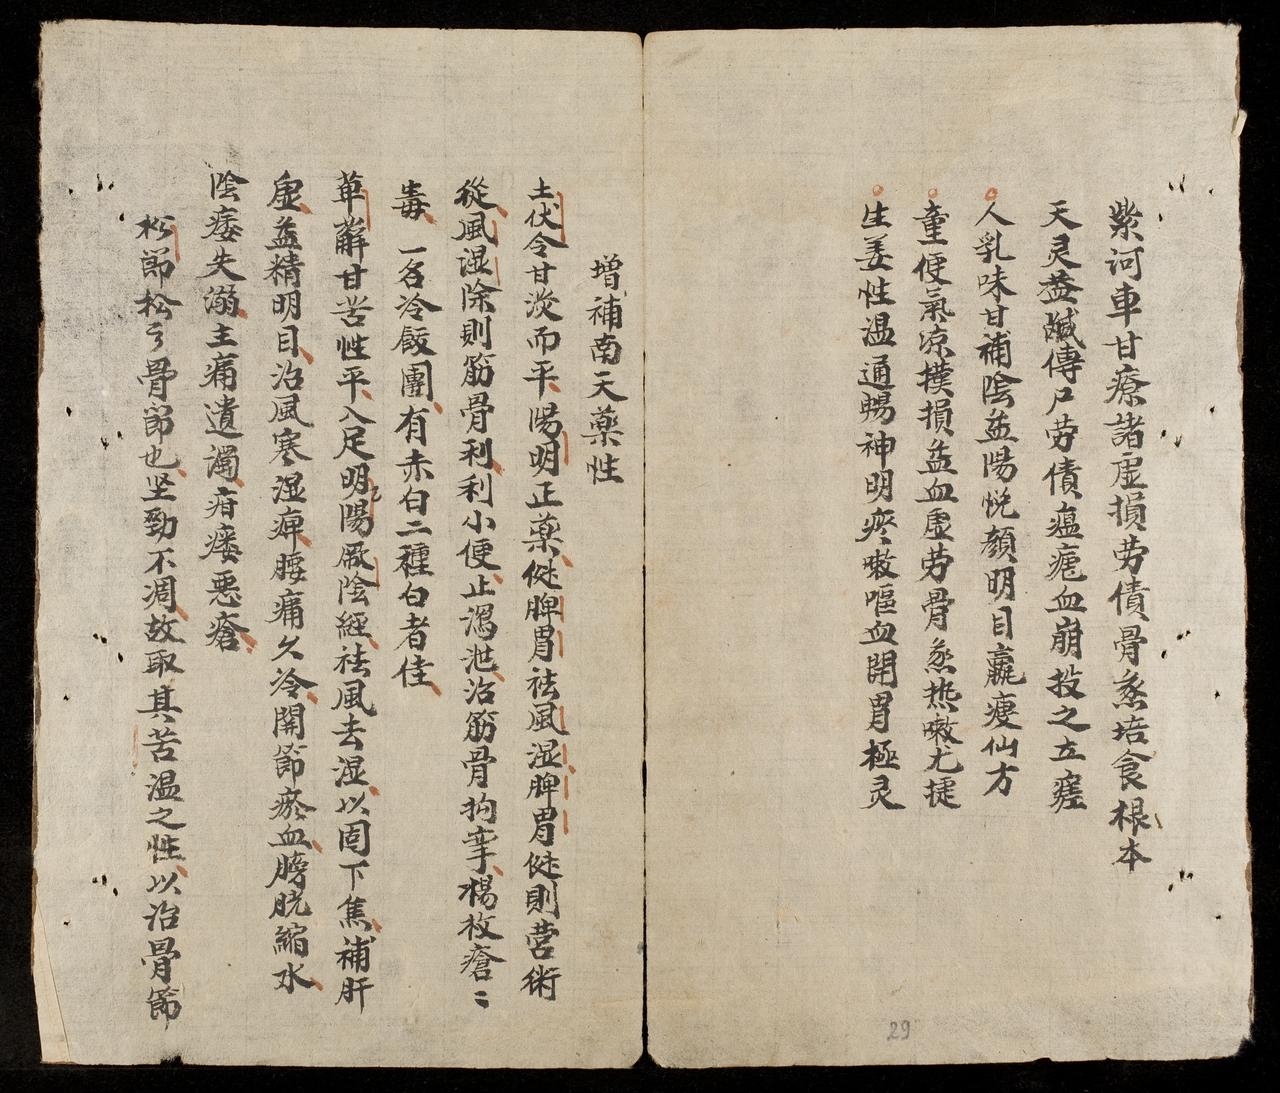 紫河車甘療諸虛損劳債骨蒸培食根本
天灵葢鹹傳尸劳債瘟疤血崩投之立瘥
人乳味甘補陰益陽悦顏明目羸瘦仙方
童便氣凉撲損益血虛劳骨蒸热嗽尤捷
生姜性温通暢神明痰嗽嘔血開胃極灵
29
增補南天藥性
土伏令甘淡而平陽明正藥健脾胃祛風湿脾胃健則营術
從風湿除則筋骨利利小便止瀉泄治筋骨拘挛楊枚瘡〻
毒一名冷飯團有赤白二種白者佳
萆薢甘苦性平入足明陽厥陰經祛風去湿以固下焦補肝
虛益精明目治風寒湿痺腰痛久冷關節瘀血膀胱縮水
陰痿失溺主痛遺濁疳瘻恶瘡
松節松之骨節也坚勁不凋故取其苦温之性以治骨節